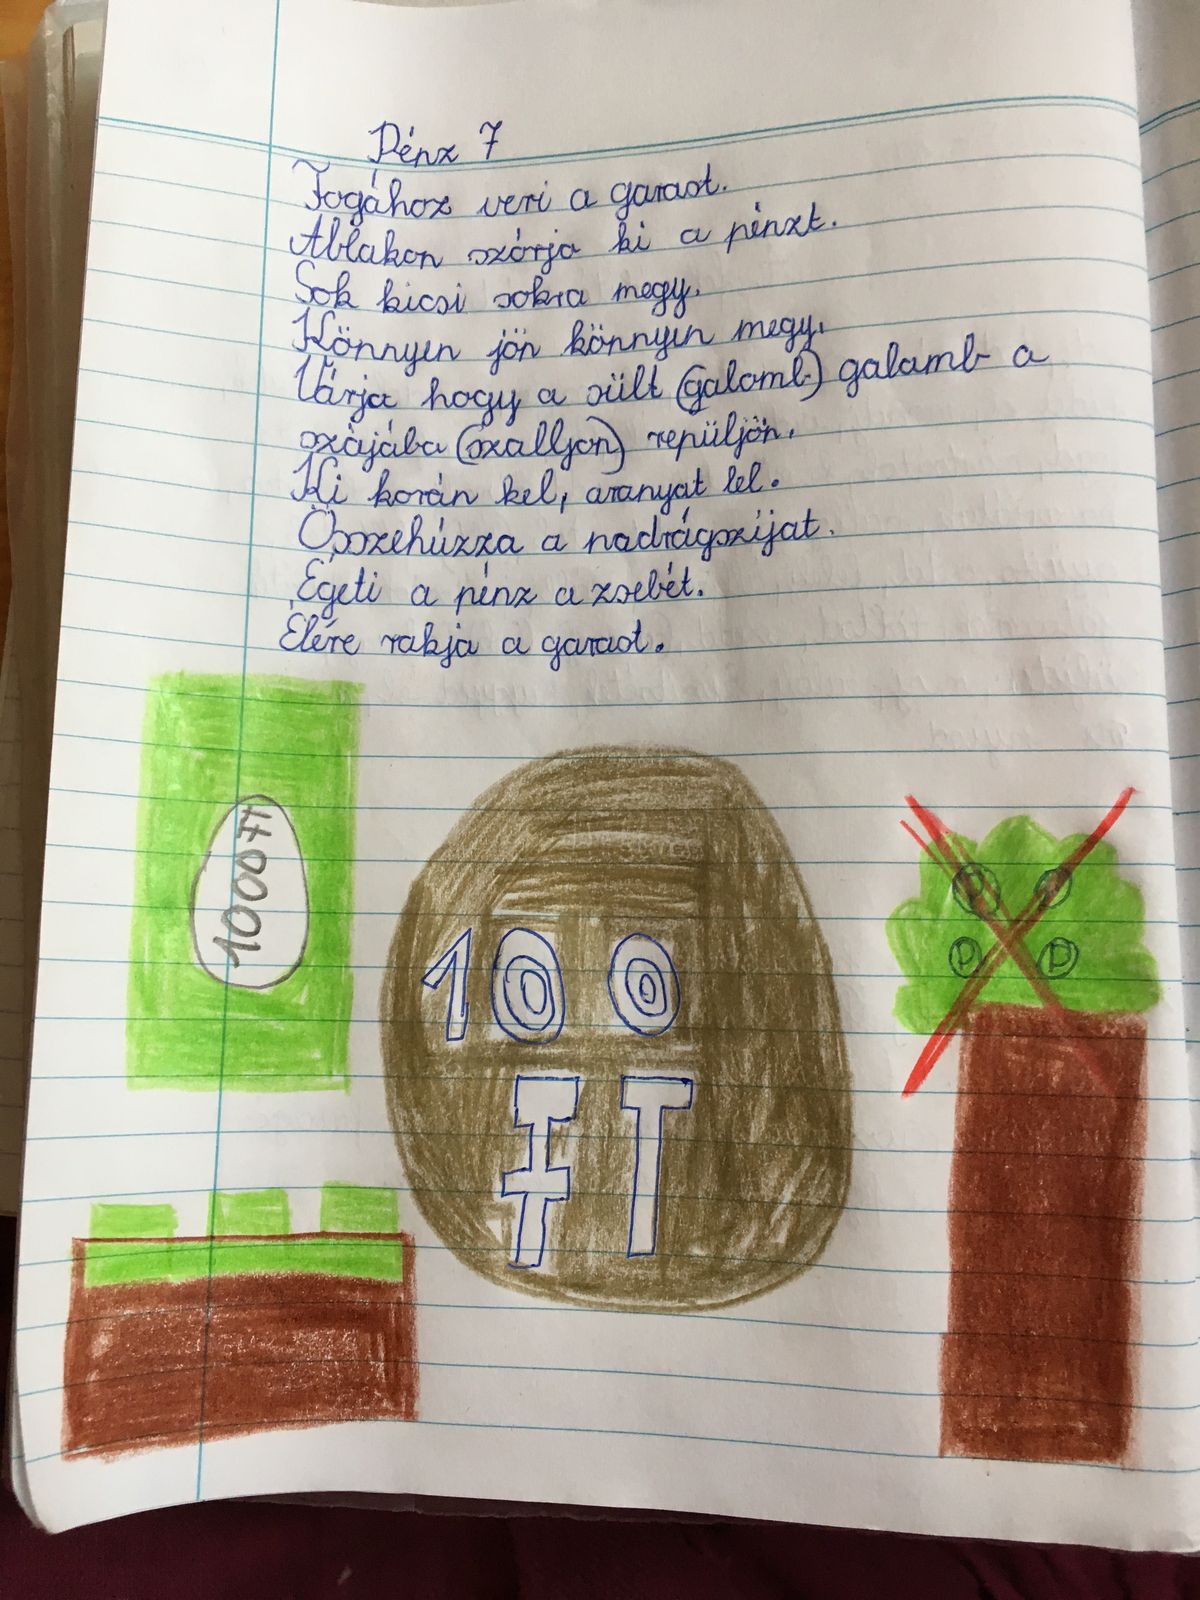 Pénz 7
Fogához veri a garast.
Ablakon szórja ki a pénzt.
Sok kicsi sokra megy.
Könnyen jön könnyen megy.
Várja hogy a sült (galamb) galamb a
szájába (szalljon) repüljön.
Ki korán kel, aranyat lel.
Összehúzza a nadrágszíjat.
Égeti a pénz a zsebét.
Élére rakja a garast.
1000 Ft
100
FT
P P
P P